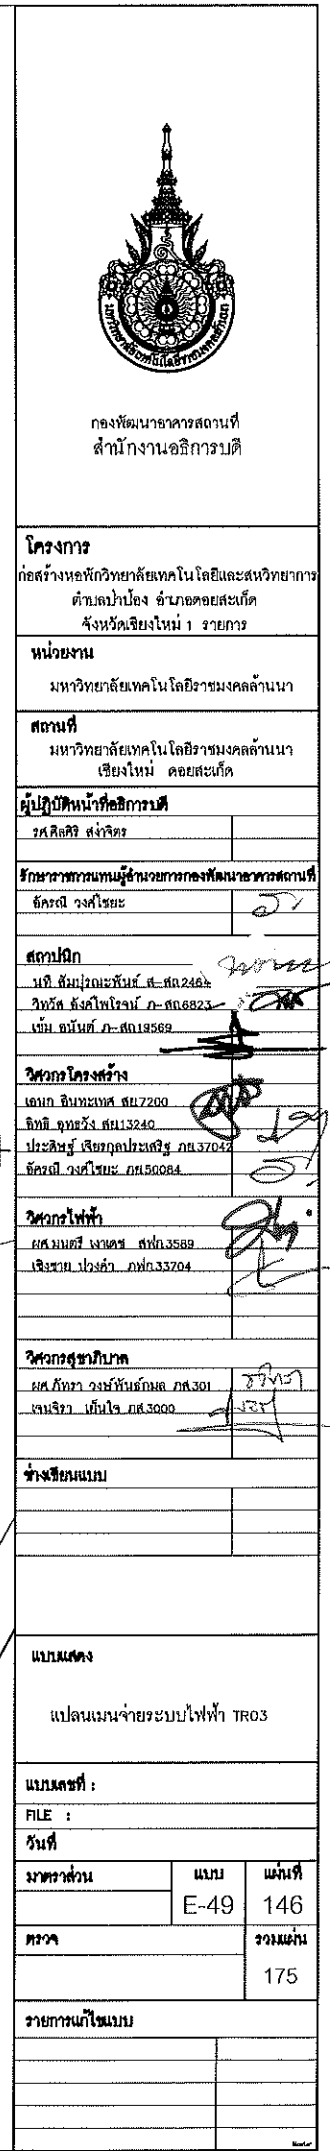 กองพัฒนาอาคารสถานที่
สำนักงานอธิการบดี
โครงการ
ก่อสร้างหอพักวิทยาลัยเทคโนโลยีและสหวิทยาการ
ตำบลป่าป้อง อำเภอดอยสะเก็ด
จังหวัดเชียงใหม่ 1 รายการ
หน่วยงาน
มหาวิทยาลัยเทคโนโลยีราชมงคลล้านนา
สถานที่
มหาวิทยาลัยเทคโนโลยีราชมงคลล้านนา
เชียงใหม่ ดอยสะเก็ด
ผู้ปฏิบัติหน้าที่อธิการบดี
รศ.ศีลศิริ สง่าจิตร
รักษาราชการแทนผู้อำนวยการกองพัฒนาอาคารสถานที่
อัครณี วงศ์ไชยะ
สถาปนิก
นที สัมปุรณะพันธ์ ส-สถ2464
วิทวัส อังศ์ไพโรจน์ ภ-สถ6823
เข้ม อนันต์ ภ-สถ19569
วิศวกรโครงสร้าง
เอนก อินทะเทศ สย7200
อิทธิ อุทธวัง สย13240
ประดิษฐ์ เจียรกุลประเสริฐ ภย37042
อัครณี วงศ์ไชยะ ภย50084
วิศวกรไฟฟ้า
ผศ.มนตรี เงาเดช สฟก.3589
เชิงชาย ปวงคำ ภฟก.33704
วิศวกรสุขาภิบาล
ผศ.ภัทรา วงษ์พันธ์กมล ภส.301
เจนจิรา เย็นใจ ภส.3000
ช่างเขียนแบบ
แบบแสดง
แปลนเมนจ่ายระบบไฟฟ้า TR03
แบบเลขที่ :
FILE :
วันที่
มาตราส่วน แบบ แผ่นที่
E-49 146
ตรวจ รวมแผ่น
175
รายการแก้ไขแบบ